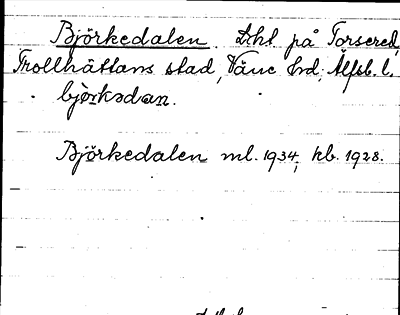 Björkedalen Lht på Torsered,
Trollhättans stad, Väne hd, Älfsb. l.
bjö̀rkədan.
Björkedalen ml. 1934, kb. 1928.